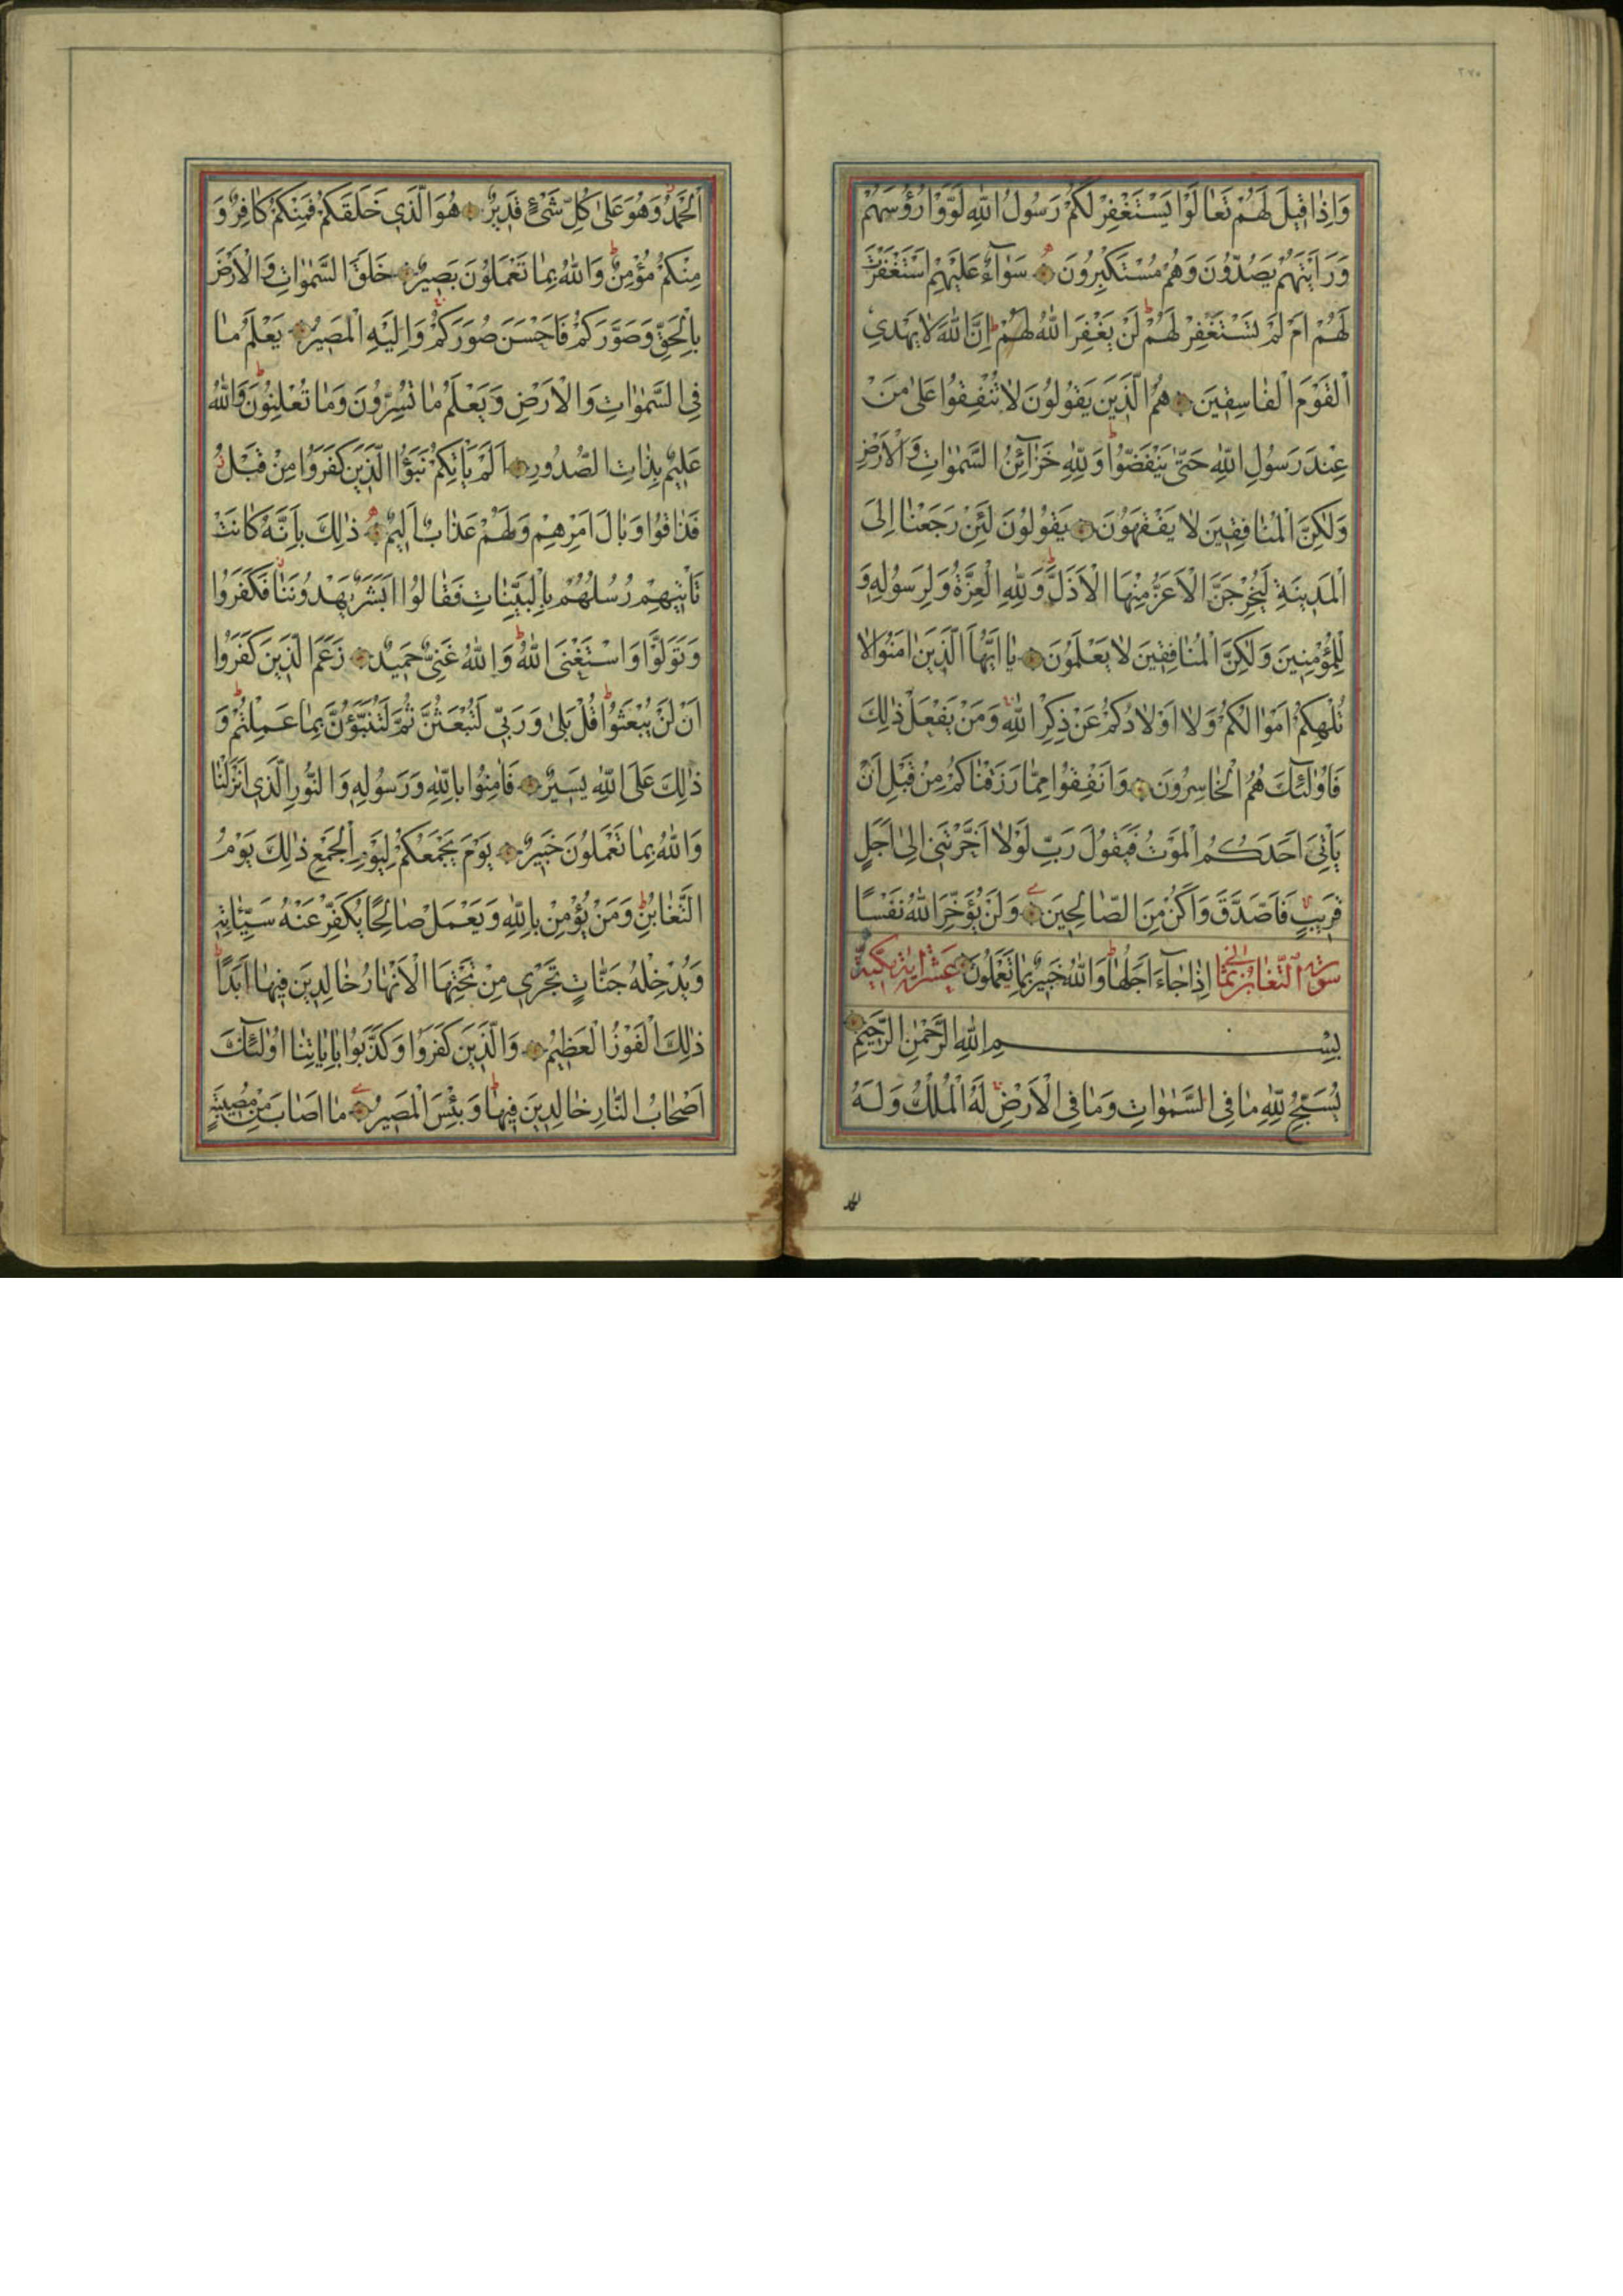 ٢٧٥
وَاِذَا قٖيلَ لَهُمْ تَعَالَوْا يَسْتَغْفِرْ لَكُمْ رَسُولُ اللّٰهِ لَوَّوْا رُؤُسَهُمْ
وَرَاَيْتَهُمْ يَصُدُّونَ وَهُمْ مُسْتَكْبِرُونَ سَوَآءٌ عَلَيْهِمْ اَسْتَغْفَرْتَ
لَهُمْ اَمْ لَمْ تَسْتَغْفِرْ لَهُمْ لَنْ يَغْفِرَ اللّٰهُ لَهُمْ اِنَّ اللّٰهَ لَا يَهْدِي
الْقَوْمَ الْفَاسِقٖينَ هُمُ الَّذٖينَ يَقُولُونَ لَا تُنْفِقُوا عَلٰى مَنْ
عِنْدَ رَسُولِ اللّٰهِ حَتّٰى يَنْفَضُّوا وَلِلّٰهِ خَزَآئِنُ السَّمٰوَاتِ وَالْاَرْضِ
وَلٰكِنَّ الْمُنَافِقٖينَ لَا يَفْقَهُونَ يَقُولُونَ لَئِنْ رَجَعْنَا اِلَى
الْمَدٖينَةِ لَيُخْرِجَنَّ الْاَعَزُّ مِنْهَا الْاَذَلَّ وَلِلّٰهِ الْعِزَّةُ وَلِرَسُولِهٖ وَ
لِلْمُؤْمِنٖينَ وَلٰكِنَّ الْمُنَافِقٖينَ لَا يَعْلَمُونَ يَا اَيُّهَا الَّذٖينَ اٰمَنُوا لَا
تُلْهِكُمْ اَمْوَالُكُمْ وَلَا اَوْلَادُكُمْ عَنْ ذِكْرِ اللّٰهِ وَمَنْ يَفْعَلْ ذٰلِكَ
فَاُولٰٓئِكَ هُمُ الْخَاسِرُونَ وَاَنْفِقُوا مِمَّا رَزَقْنَاكُمْ مِنْ قَبْلِ اَنْ
يَاْتِيَ اَحَدَكُمُ الْمَوْتُ فَيَقُولَ رَبِّ لَوْلَا اَخَّرْتَنٖي اِلٰى اَجَلٍ
قَرٖيبٍ فَاَصَّدَّقَ وَاَكُنْ مِنَ الصَّالِحٖينَ وَلَنْ يُؤَخِّرَ اللّٰهُ نَفْسًا
سورة التغابن ثمانى اِذَا جَآءَ اَجَلُهَا وَاللّٰهُ خَبٖيرٌ بِمَا تَعْمَلُونَ عشر اية مكية
بِسْمِ اللّٰهِ الرَّحْمٰنِ الرَّحٖيمِ
يُسَبِّحُ لِلّٰهِ مَا فِي السَّمٰوَاتِ وَمَا فِي الْاَرْضِ لَهُ الْمُلْكُ وَلَهُ
الحمد
الْحَمْدُ وَهُوَ عَلٰى كُلِّ شَيْءٍ قَدٖيرٌ هُوَ الَّذٖي خَلَقَكُمْ فَمِنْكُمْ كَافِرٌ وَ
مِنْكُمْ مُؤْمِنٌ وَاللّٰهُ بِمَا تَعْمَلُونَ بَصٖيرٌ خَلَقَ السَّمٰوَاتِ وَالْاَرْضَ
بِالْحَقِّ وَصَوَّرَكُمْ فَاَحْسَنَ صُوَرَكُمْ وَاِلَيْهِ الْمَصٖيرُ يَعْلَمُ مَا
فِي السَّمٰوَاتِ وَالْاَرْضِ وَيَعْلَمُ مَا تُسِرُّونَ وَمَا تُعْلِنُونَ وَاللّٰهُ
عَلٖيمٌ بِذَاتِ الصُّدُورِ اَلَمْ يَاْتِكُمْ نَبَؤُا الَّذٖينَ كَفَرُوا مِنْ قَبْلُ
فَذَاقُوا وَبَالَ اَمْرِهِمْ وَلَهُمْ عَذَابٌ اَلٖيمٌ ذٰلِكَ بِاَنَّهُ كَانَتْ
تَاْتٖيهِمْ رُسُلُهُمْ بِالْبَيِّنَاتِ فَقَالُوا اَبَشَرٌ يَهْدُونَنَا فَكَفَرُوا
وَتَوَلَّوْا وَاسْتَغْنَى اللّٰهُ وَاللّٰهُ غَنِيٌّ حَمٖيدٌ زَعَمَ الَّذٖينَ كَفَرُوا
اَنْ لَنْ يُبْعَثُوا قُلْ بَلٰى وَرَبّٖي لَتُبْعَثُنَّ ثُمَّ لَتُنَبَّؤُنَّ بِمَا عَمِلْتُمْ وَ
ذٰلِكَ عَلَى اللّٰهِ يَسٖيرٌ فَاٰمِنُوا بِاللّٰهِ وَرَسُولِهٖ وَالنُّورِ الَّذٖي اَنْزَلْنَا
وَاللّٰهُ بِمَا تَعْمَلُونَ خَبٖيرٌ يَوْمَ يَجْمَعُكُمْ لِيَوْمِ الْجَمْعِ ذٰلِكَ يَوْمُ
التَّغَابُنِ وَمَنْ يُؤْمِنْ بِاللّٰهِ وَيَعْمَلْ صَالِحًا يُكَفِّرْ عَنْهُ سَيِّئَاتِهٖ
وَيُدْخِلْهُ جَنَّاتٍ تَجْرٖي مِنْ تَحْتِهَا الْاَنْهَارُ خَالِدٖينَ فٖيهَا اَبَدًا
ذٰلِكَ الْفَوْزُ الْعَظٖيمُ وَالَّذٖينَ كَفَرُوا وَكَذَّبُوا بِاٰيَاتِنَا اُولٰٓئِكَ
اَصْحَابُ النَّارِ خَالِدٖينَ فٖيهَا وَبِئْسَ الْمَصٖيرُ مَا اَصَابَ مِنْ مُصٖيبَةٍ